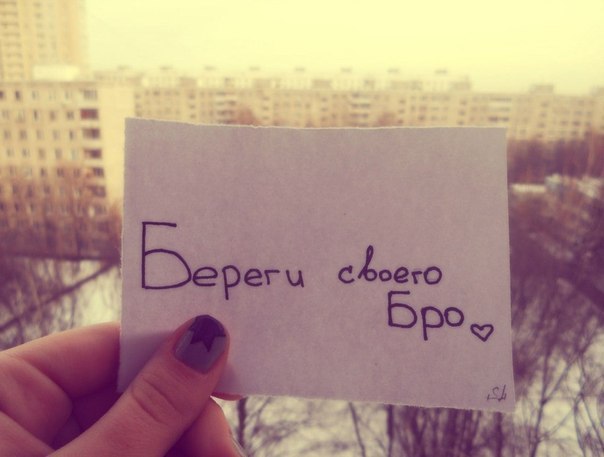 Береги своего
Бро♡